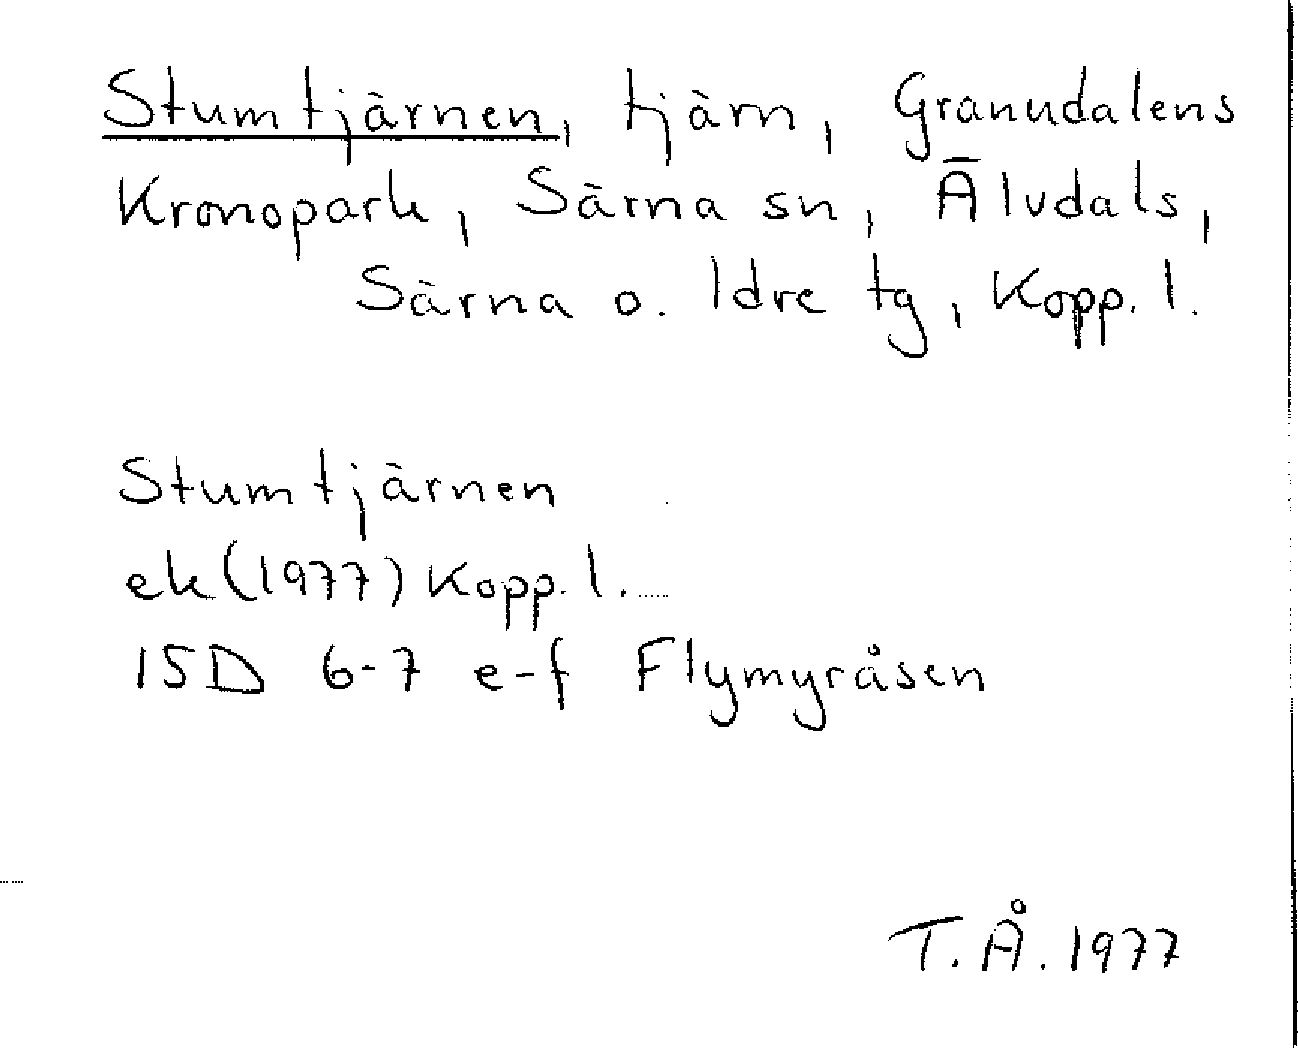 Stumtjärnen, tjärn, Granudalens
Kronopark, Särna sn, Älvdals,
Särna o. Idre tg, Kopp. l.
Stumtjärnen
ek(1977) Kopp. l.
15D 6-7 e-f Flymyråsen
T.Å. 1977